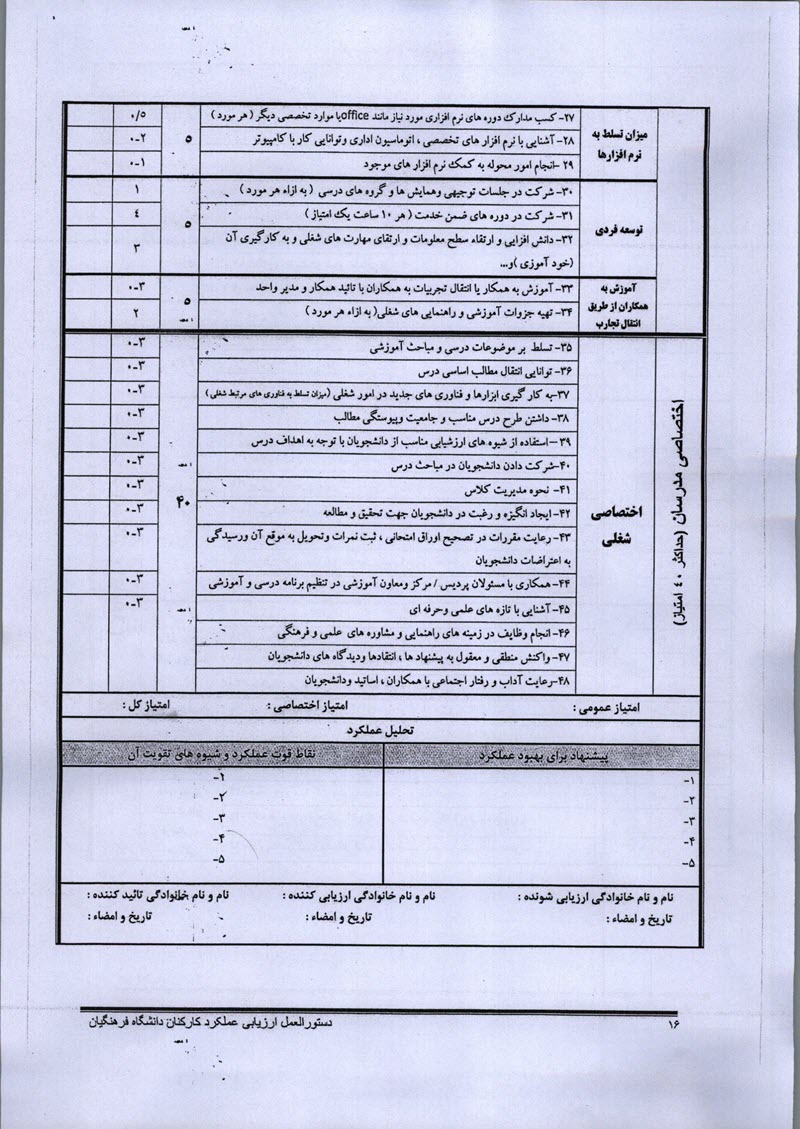 میزان تسلط به نرم افزارها
۲۷- کسب مدارک دوره های نرم افزاری مورد نیاز مانند officeیا موارد تخصصی دیگر ( هر مورد )
۰/۵
۲۸- آشنایی با نرم افزار های تخصصی ، اتوماسیون اداری وتوانایی کار با کامپیوتر
۵
۰-۲
۲۹ -انجام امور محوله به کمک نرم افزار های موجود
۰-۱
توسعه فردی
۳۰- شرکت در جلسات توجیهی وهمایش ها و گروه های درسی ( به ازاء هر مورد )
۱
۳۱- شرکت در دوره های ضمن خدمت ( هر ۱۰ ساعت یک امتیاز )
۵
۴
۳۲- دانش افزایی و ارتقاء سطح معلومات و ارتقای مهارت های شغلی و به کارگیری آن
(خود آموزی )و...
۳
آموزش به همکاران از طریق انتقال تجارب
۳۳- آموزش به همکار یا انتقال تجربیات به همکاران با تائید همکار و مدیر واحد
۵
۰-۳
۳۴- تهیه جزوات آموزشی و راهنمایی های شغلی( به ازاء هر مورد )
۲
اختصاصی مدرسان (حداکثر ۴۰ امتیاز)
اختصاصی شغلی
۴۰
۳۵- تسلط بر موضوعات درسی و مباحث آموزشی
۰-۳
۳۶- توانایی انتقال مطالب اساسی درس
۰-۳
۳۷-به کار گیری ابزارها و فناوری های جدید در امور شغلی (میزان تسلط به فناوری های مرتبط شغلی)
۰-۳
۳۸- داشتن طرح درس مناسب و جامعیت وپیوستگی مطالب
۰-۳
۳۹ -استفاده از شیوه های ارزشیابی مناسب از دانشجویان با توجه به اهداف درس
۰-۳
۴۰-شرکت دادن دانشجویان در مباحث درس
۰-۳
۴۱- نحوه مدیریت کلاس
۰-۳
۴۲- ایجاد انگیزه و رغبت در دانشجویان جهت تحقیق و مطالعه
۰-۳
۴۳- رعایت مقررات در تصحیح اوراق امتحانی ، ثبت نمرات وتحویل به موقع آن ورسیدگی
به اعتراضات دانشجویان
۰-۳
۴۴- همکاری با مسئولان پردیس / مرکز ومعاون آموزشی در تنظیم برنامه درسی و آموزشی
۰-۳
۴۵- آشنایی با تازه های علمی وحرفه ای
۰-۳
۴۶- انجام وظایف در زمینه های راهنمایی و مشاوره های علمی و فرهنگی
۴۷- واکنش منطقی و معقول به پیشنهاد ها ، انتقادها ودیدگاه های دانشجویان
۴۸-رعایت آداب و رفتار اجتماعی با همکاران ، اساتید ودانشجویان
امتیاز عمومی : امتیاز اختصاصی : امتیاز کل :
تحلیل عملکرد
پیشنهاد برای بهبود عملکرد
نقاط قوت عملکرد و شیوه های تقویت آن
۱-
۲-
۳-
۴-
۵-
۱-
۲-
۳-
۴-
۵-
نام و نام خانوادگی ارزیابی شونده : نام و نام خانوادگی ارزیابی کننده : نام و نام خانوادگی تائید کننده :
تاریخ و امضاء : تاریخ و امضاء : تاریخ و امضاء :
۱۶ دستورالعمل ارزیابی عملکرد کارکنان دانشگاه فرهنگیان